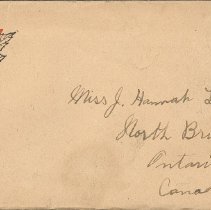 Miss J. Hannah L
North Br
Ontari
Cana